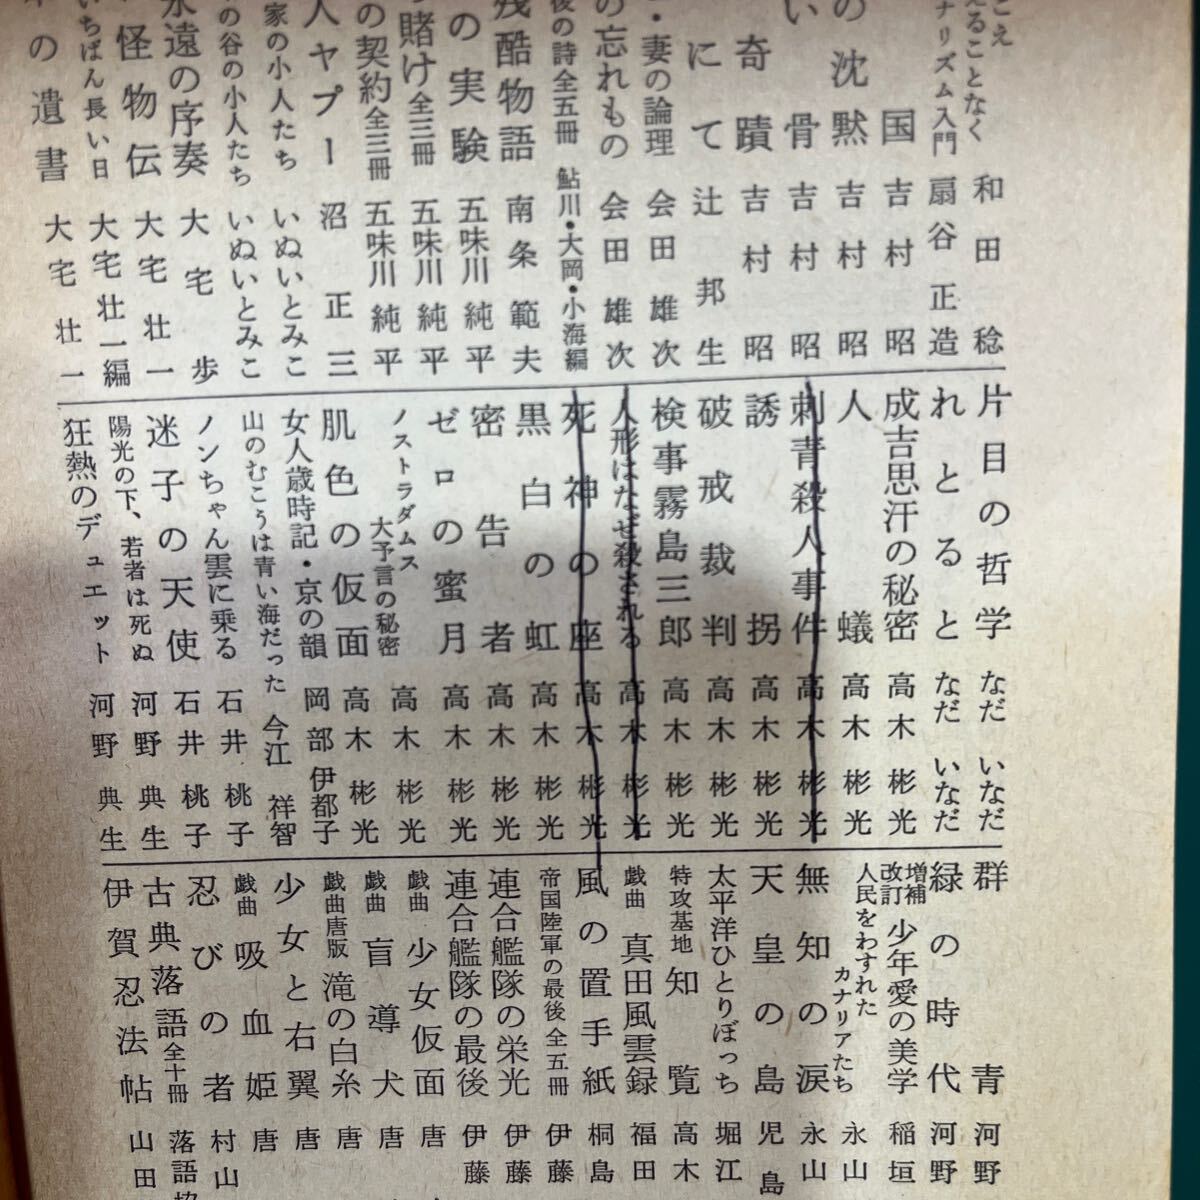 こえ
えることなく 和田稔
ナリズム入門 扇谷正造
国 吉村昭
の沈黙 吉村昭
い骨 吉村昭
奇蹟 吉村昭
にて 辻邦生
・妻の論理 会田雄次
の忘れもの 会田雄次
後の詩全五冊 鮎川・大岡・小海編
残酷物語 南条範夫
の実験 五味川純平
賭け全三冊 五味川純平
の契約全三冊 五味川純平
人ヤプー 沼正三
家の小人たち いぬいとみこ
の谷の小人たち いぬいとみこ
永遠の序奏 大宅歩
怪物伝 大宅壮一
いちばん長い日 大宅壮一編
の遺書 大宅壮一
片目の哲学 なだいなだ
れとると なだいなだ
成吉思汗の秘密 高木彬光
人蟻 高木彬光
刺青殺人事件 高木彬光
誘拐 高木彬光
破戒裁判 高木彬光
検事霧島三郎 高木彬光
人形はなぜ殺される 高木彬光
死神の座 高木彬光
黒白の虹 高木彬光
密告者 高木彬光
ゼロの蜜月 高木彬光
ノストラダムス
大予言の秘密 高木彬光
肌色の仮面 高木彬光
女人歳時記・京の韻 岡部伊都子
山のむこうは青い海だった 今江祥智
ノンちゃん雲に乗る 石井桃子
迷子の天使 石井桃子
陽光の下、若者は死ぬ 河野典生
狂熱のデュエット 河野典生
群青 河野
緑の時代 河野
増補
改訂 少年愛の美学 稲垣
人民をわすれた
カナリアたち 永山
無知の涙 永山
天皇の島 児島
太平洋ひとりぼっち 堀江
特攻基地 知覧 高木
戯曲 真田風雲録 福田
風の置手紙 桐島
帝国陸軍の最後 全五冊 伊藤
連合艦隊の栄光 伊藤
連合艦隊の最後 伊藤
戯曲 少女仮面 唐
戯曲 盲導犬 唐
戯曲唐版 滝の白糸 唐
少女と右翼 唐
戯曲 吸血姫 唐
忍びの者 村山
古典落語全十冊 落語協
伊賀忍法帖 山田